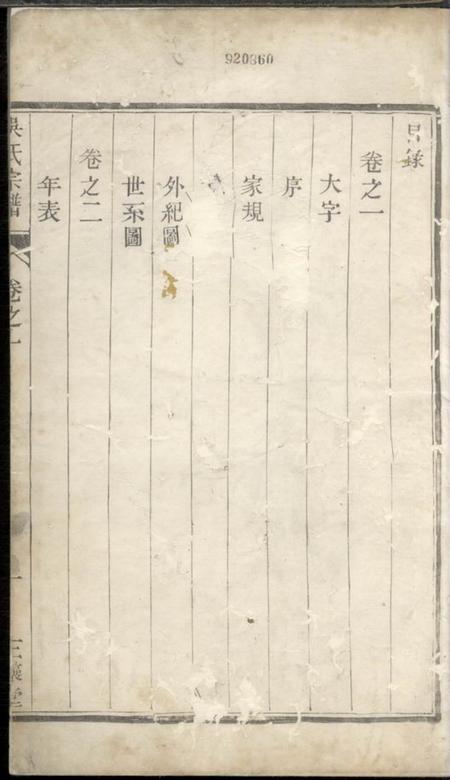 920860
目錄
卷之一
大字
序
家規
外紀圖
世系圖
卷之二
年表
吳氏宗譜
卷之一
一
三讓堂